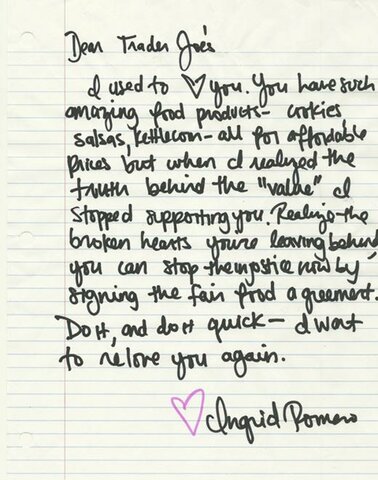 Dear Trader Joe's
I used to ♡ you. You have such
amazing food products- cookies,
salsas, kettlecorn-all for affordable
prices but when I realized the
truth behind the "value" I
stopped supporting you. Realize the
broken hearts you're leaving behind,
you can stop the injustice now by
signing the fair food agreement.
Do it, and do it quick- I want
to relove you again.
♡ Ingrid Romero